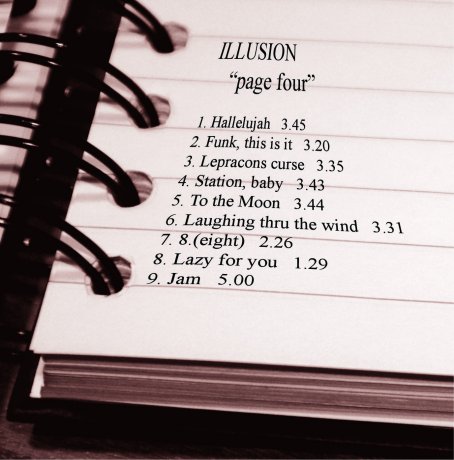 ILLUSION
“page four”
1. Hallelujah 3.45
2. Funk, this is it 3.20
3. Lepracons curse 3.35
4. Station, baby 3.43
5. To the Moon 3.44
6. Laughing thru the wind 3.31
7. 8.(eight) 2.26
8. Lazy for you 1.29
9. Jam 5.00